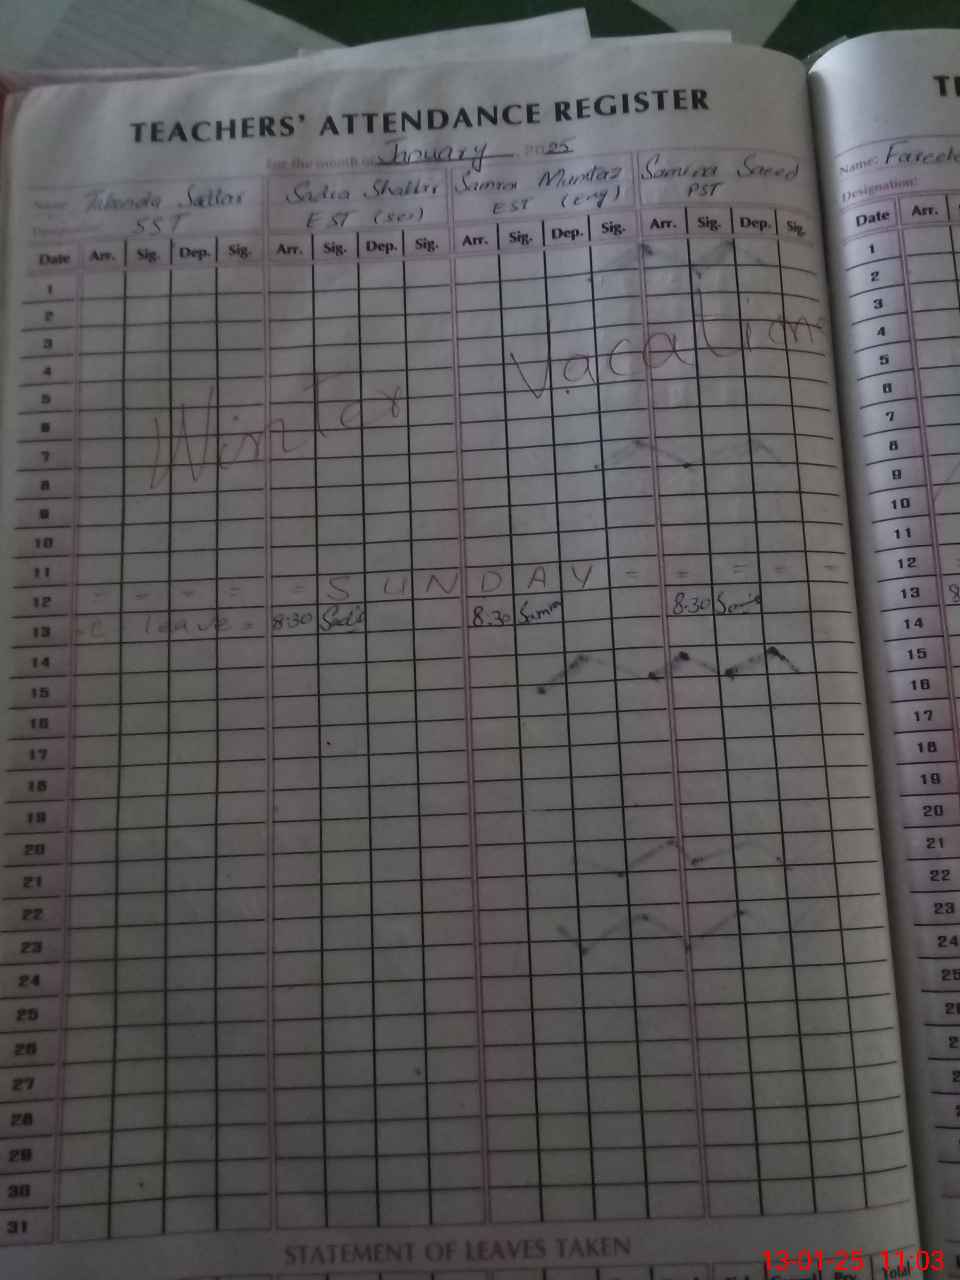 TEACHERS' ATTENDANCE REGISTER
For the month of January 2025
Name: Sattar Sadia Shabbir Samra Mumtaz Samina Saeed
SST EST (sci) EST (eng) PST
Date Arr. Sig. Dep. Sig. Arr. Sig. Dep. Sig. Arr. Sig. Dep. Sig. Arr. Sig. Dep. Sig.
1
2
3
4
5
6
Winter Vacation
7
8
9
10
11
12 = = = = = S U N D A Y = = = = =
13 leave = 8:30 8:30 8:30
14
15
16
17
18
19
20
21
22
23
24
25
26
27
28
29
30
31
STATEMENT OF LEAVES TAKEN
Total
Name:
Designation:
Date Arr.
1
2
3
4
5
6
7
8
9
10
11
12
13
14
15
16
17
18
19
20
21
22
23
24
25
13-01-25 11:03